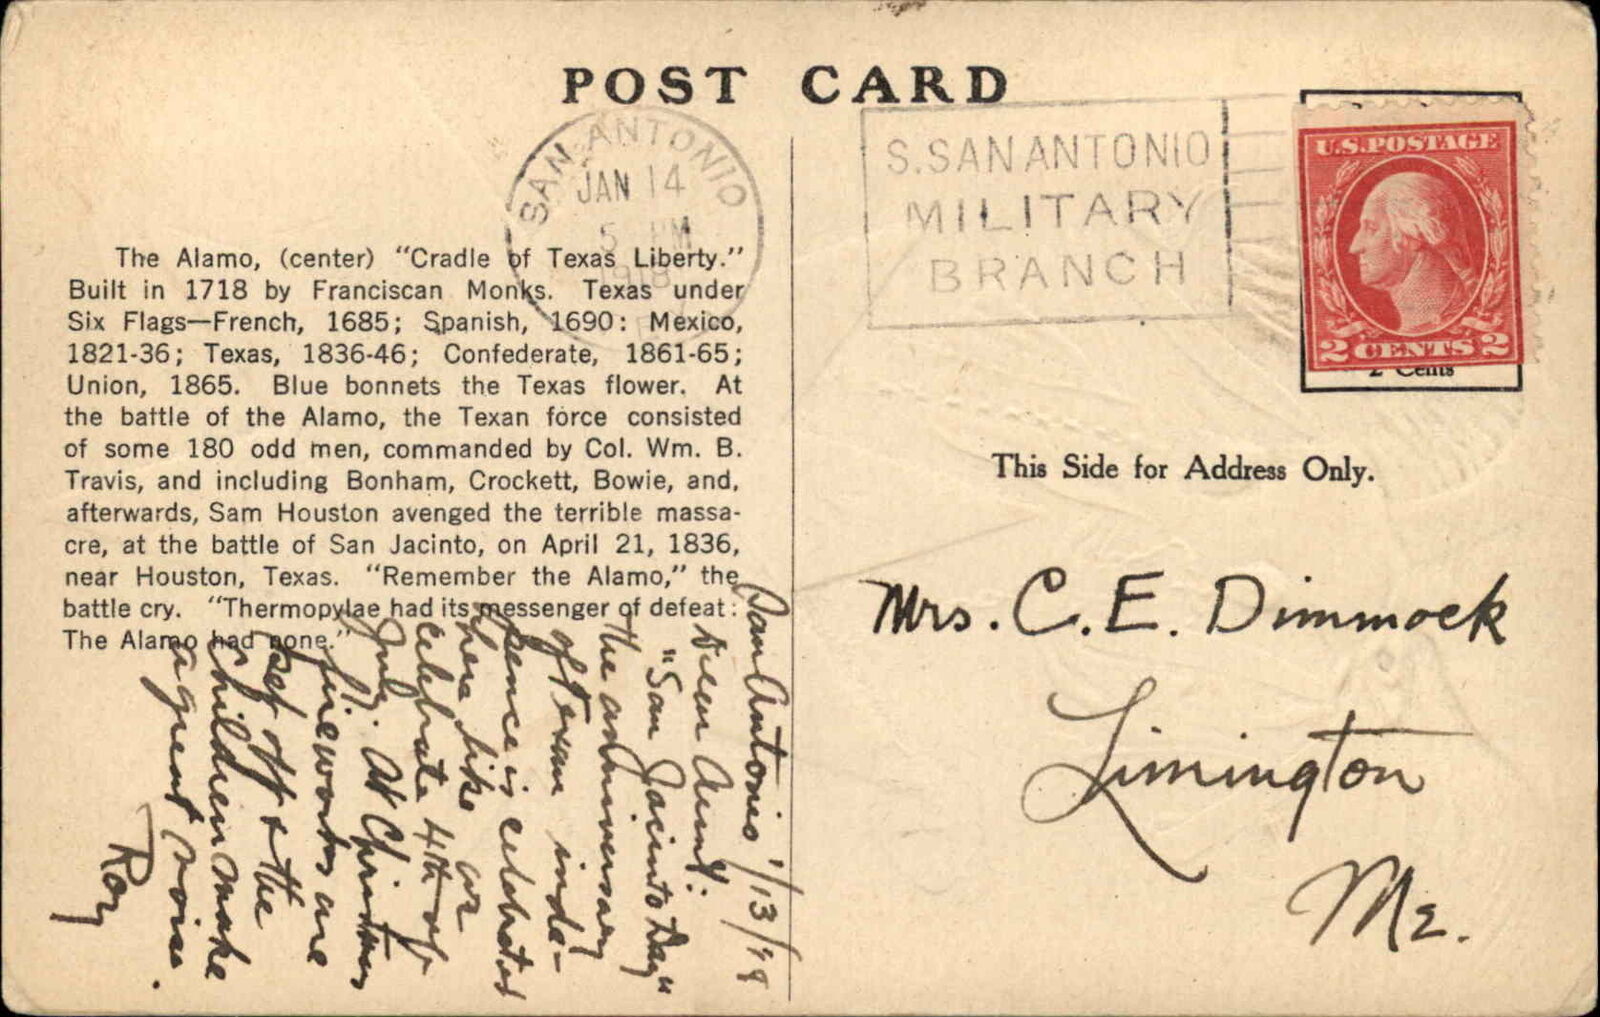 POST CARD
SAN ANTONIO
JAN 14
5 PM
1918
S. SAN ANTONIO
MILITARY
BRANCH
U.S. POSTAGE
2 CENTS 2
2 Cents
The Alamo, (center) "Cradle of Texas Liberty."
Built in 1718 by Franciscan Monks. Texas under
Six Flags—French, 1685; Spanish, 1690: Mexico,
1821-36; Texas, 1836-46; Confederate, 1861-65;
Union, 1865. Blue bonnets the Texas flower. At
the battle of the Alamo, the Texan force consisted
of some 180 odd men, commanded by Col. Wm. B.
Travis, and including Bonham, Crockett, Bowie, and,
afterwards, Sam Houston avenged the terrible massa-
cre, at the battle of San Jacinto, on April 21, 1836,
near Houston, Texas. "Remember the Alamo," the
battle cry. "Thermopylae had its messenger of defeat:
The Alamo had none."
San Antonio 1/13/18
Dear Aunt:
"San Jacinto Day"
the anniversary
of Texan inde-
pence is celebrated
here like we
celebrate 4th of
July. At Christmas
fireworks are
set off & the
children make
a great noise.
Roy
This Side for Address Only.
Mrs. C. E. Dimmock
Limington
Me.